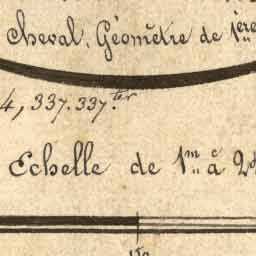 Cheval, Géomètre de 1ère
4, 337.337.ter
Echelle de 1m à 2